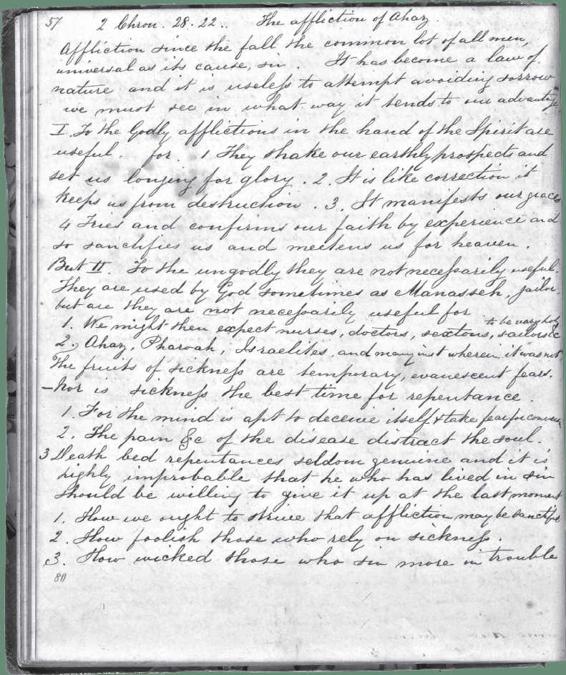 57 2 Chron. 28. 22.. The affliction of Ahaz.
Affliction since the fall the common lot of all men,
universal as its cause, sin. It has become a law of
nature and it is useless to attempt avoiding sorrow
we must see in what way it tends to our advantage
I. To the Godly afflictions in the hand of the Spirit are
useful. for. 1 They shake our earthly prospects and
set us longing for glory. 2. It is like correction it
keeps us from destruction. 3. It manifests our graces
4 Tries and confirms our faith by experience and
so sanctifies us and meetens us for heaven.
But II. To the ungodly they are not necessarily useful.
They are used by God sometimes as Manasseh, jailor
but are they are not necessarily useful for
1. We might then expect nurses, doctors, sextons, sailors &c to be very holy
2. Ahaz, Pharoah, Israelites, and many inst wherein it was not
The fruits of sickness are temporary, evanescent fears.
- Nor is sickness the best time for repentance.
1. For the mind is apt to deceive itself & take fear for
2. The pain &c of the disease distract the soul.
3 Death bed repentances seldom genuine and it is
highly improbable that he who has lived in sin
should be willing to give it up at the last moment
1. How we ought to strive that affliction may be sanctified
2. How foolish those who rely on sickness.
3. How wicked those who sin more in trouble
80